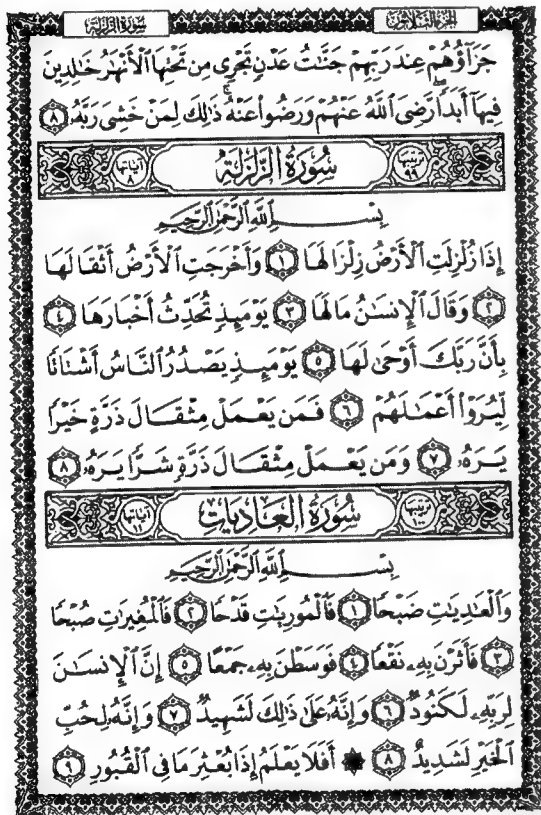 سورة الزلزلة
الجزء الثلاثون
جَزَآؤُهُمْ عِندَ رَبِّهِمْ جَنَّٰتُ عَدْنٍ تَجْرِى مِن تَحْتِهَا ٱلْأَنْهَٰرُ خَٰلِدِينَ
فِيهَآ أَبَدًا ۖ رَّضِىَ ٱللَّهُ عَنْهُمْ وَرَضُوا۟ عَنْهُ ۚ ذَٰلِكَ لِمَنْ خَشِىَ رَبَّهُۥ ٨
ترتيبها ٩٩ سُورَةُ الزَّلْزَلَةِ آياتها ٨
بِسْمِ ٱللَّهِ ٱلرَّحْمَٰنِ ٱلرَّحِيمِ
إِذَا زُلْزِلَتِ ٱلْأَرْضُ زِلْزَالَهَا ١ وَأَخْرَجَتِ ٱلْأَرْضُ أَثْقَالَهَا
٢ وَقَالَ ٱلْإِنسَٰنُ مَا لَهَا ٣ يَوْمَئِذٍ تُحَدِّثُ أَخْبَارَهَا ٤
بِأَنَّ رَبَّكَ أَوْحَىٰ لَهَا ٥ يَوْمَئِذٍ يَصْدُرُ ٱلنَّاسُ أَشْتَاتًا
لِّيُرَوْا۟ أَعْمَٰلَهُمْ ٦ فَمَن يَعْمَلْ مِثْقَالَ ذَرَّةٍ خَيْرًا
يَرَهُۥ ٧ وَمَن يَعْمَلْ مِثْقَالَ ذَرَّةٍ شَرًّا يَرَهُۥ ٨
ترتيبها ١٠٠ سُورَةُ العَادِيَاتِ آياتها
بِسْمِ ٱللَّهِ ٱلرَّحْمَٰنِ ٱلرَّحِيمِ
وَٱلْعَٰدِيَٰتِ ضَبْحًا ١ فَٱلْمُورِيَٰتِ قَدْحًا ٢ فَٱلْمُغِيرَٰتِ صُبْحًا
٣ فَأَثَرْنَ بِهِۦ نَقْعًا ٤ فَوَسَطْنَ بِهِۦ جَمْعًا ٥ إِنَّ ٱلْإِنسَٰنَ
لِرَبِّهِۦ لَكَنُودٌ ٦ وَإِنَّهُۥ عَلَىٰ ذَٰلِكَ لَشَهِيدٌ ٧ وَإِنَّهُۥ لِحُبِّ
ٱلْخَيْرِ لَشَدِيدٌ ٨ ۞ أَفَلَا يَعْلَمُ إِذَا بُعْثِرَ مَا فِى ٱلْقُبُورِ ٩